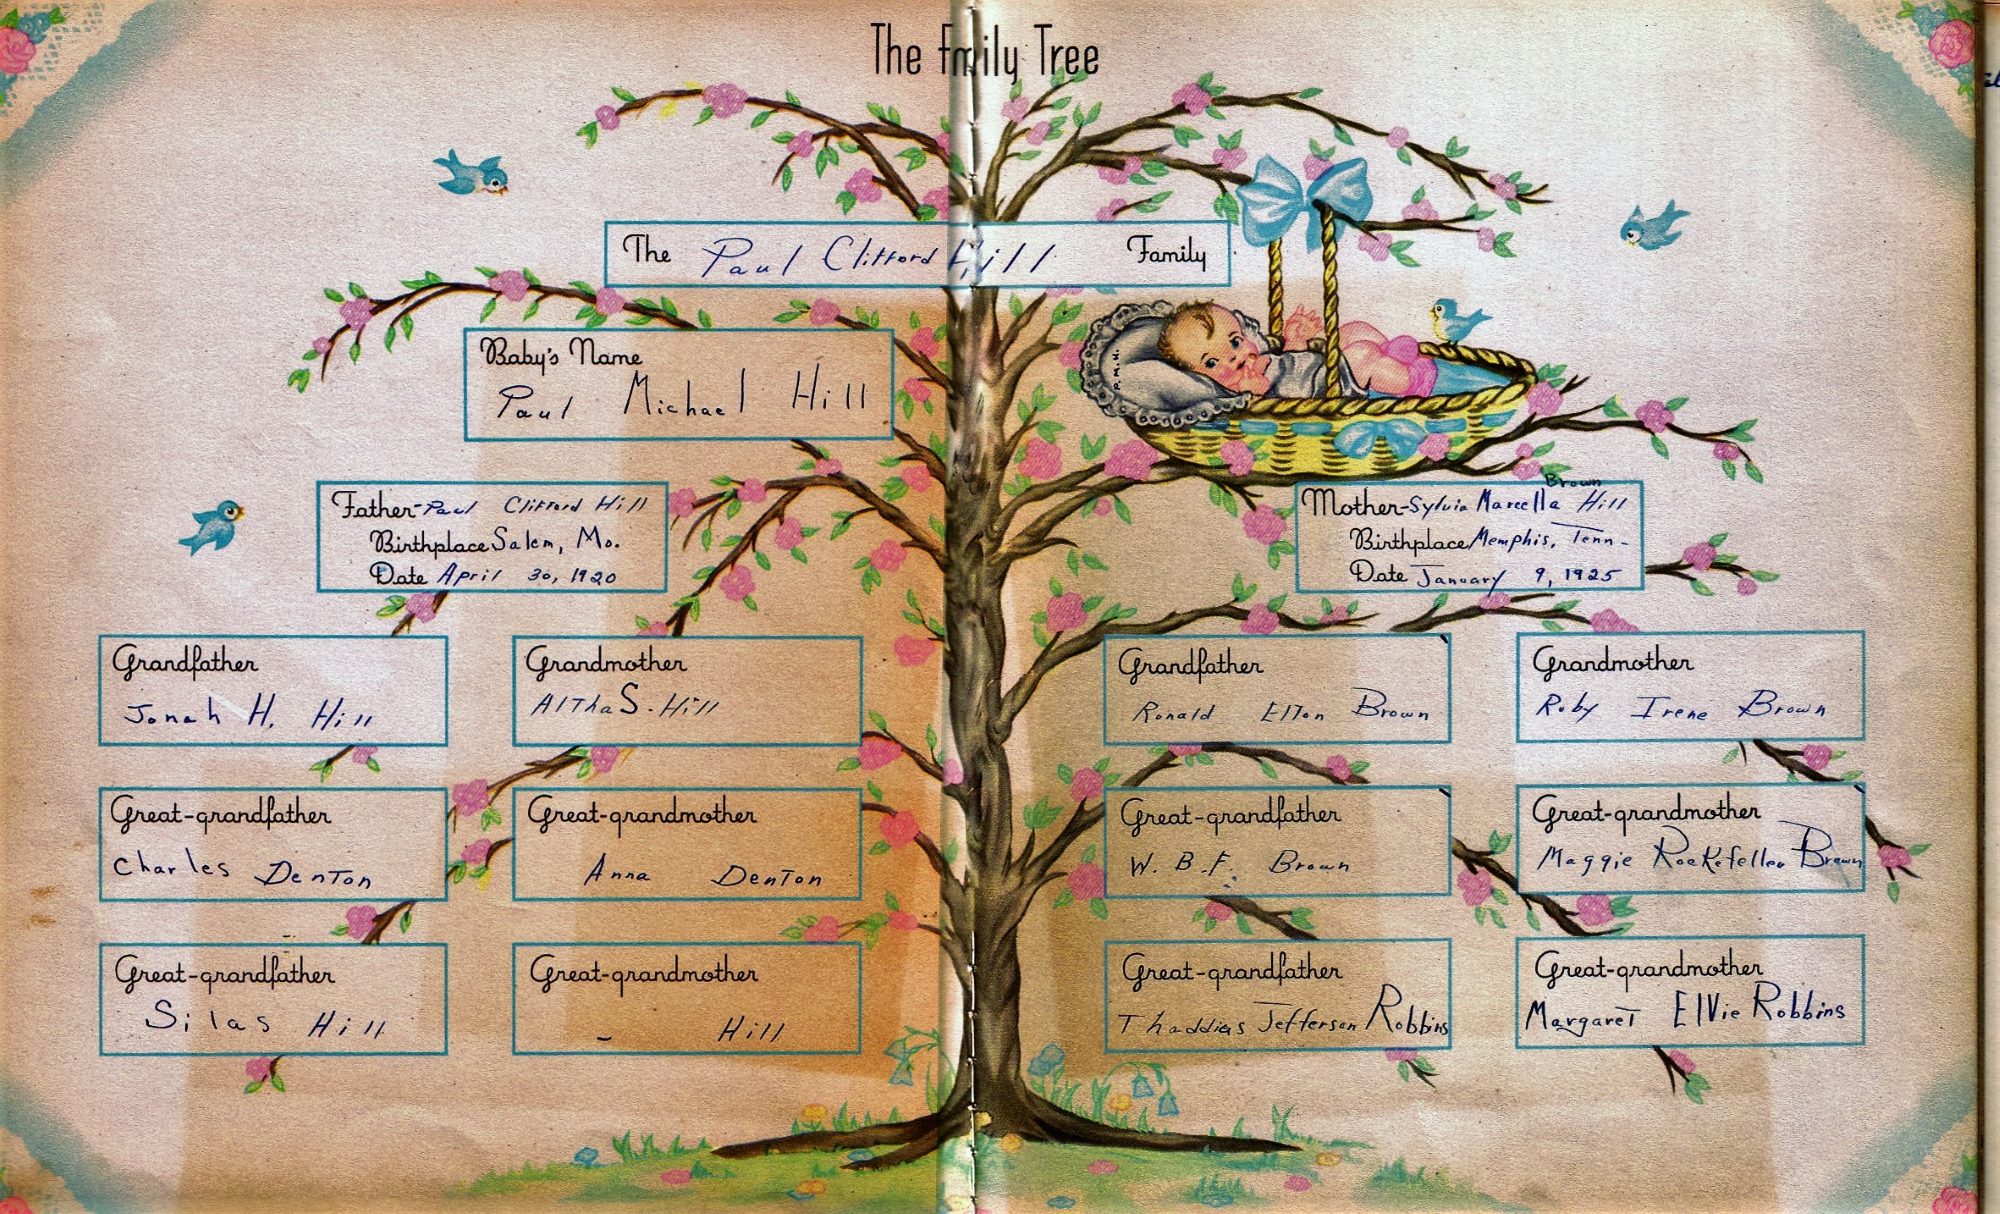 The Family Tree
The Paul Clifford Hill Family
P.M.H.
Baby's Name
Paul Michael Hill
Brown
Father- Paul Clifford Hill
Birthplace Salem, Mo.
Date April 30, 1920
Mother- Sylvia Marcella Hill
Birthplace Memphis, Tenn-
Date January 9, 1925
Grandfather
Jonah H. Hill
Grandmother
Altha S. Hill
Grandfather
Ronald Elton Brown
Grandmother
Ruby Irene Brown
Great-grandfather
Charles Denton
Great-grandmother
Anna Denton
Great-grandfather
W. B. F. Brown
Great-grandmother
Maggie Rockefeller Brown
Great-grandfather
Silas Hill
Great-grandmother
- Hill
Great-grandfather
Thaddius Jefferson Robbins
Great-grandmother
Margaret Elvie Robbins